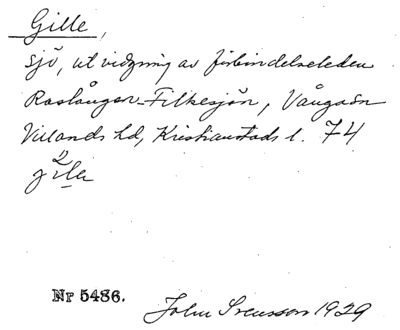 Gille,
sjö, utvidgning av förbindelseleden
Raslången-Filkesjön, Vånga sn
Villands hd, Kristianstads l. 74
Nr 5486.
John Svensson 1929